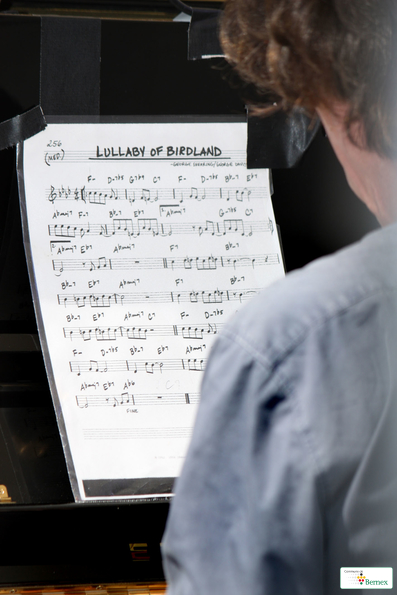 256
(MED.)
LULLABY OF BIRDLAND
-GEORGE SHEARING/GEORGE
F- D-7b5 G7b9 C7 F- D-7b5 Bb-7 Eb7
Abmaj7 F-7 Bb-7 Eb7 1. Abmaj7 G-7b5 C7
2. Abmaj7 Eb7 Abmaj7 F7 Bb-7
Bb-7 Eb7 Abmaj7 F7 Bb-7
Bb-7 Eb7 Abmaj7 C7 F- D-7b5
F- D-7b5 Bb-7 Eb7 Abmaj7
Abmaj7 Eb7 Ab6
FINE
Bernex